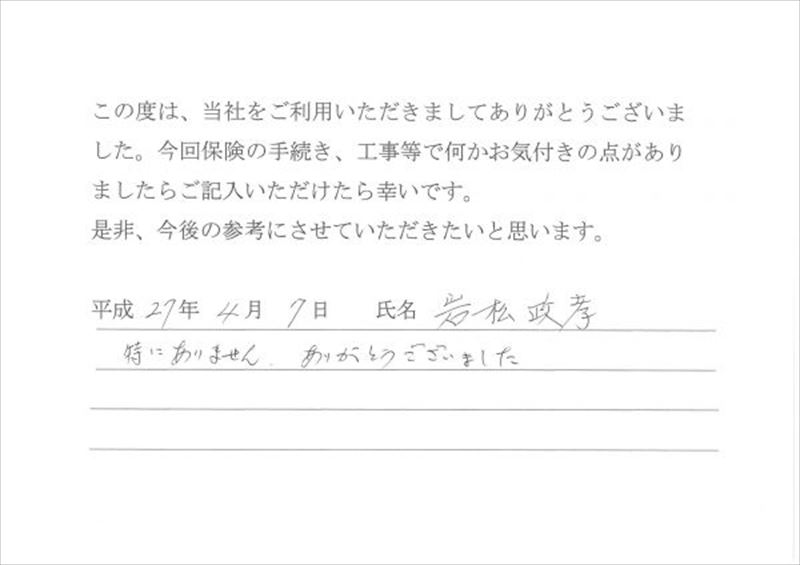 この度は、当社をご利用いただきましてありがとうございま
した。今回保険の手続き、工事等で何かお気付きの点があり
ましたらご記入いただけたら幸いです。
是非、今後の参考にさせていただきたいと思います。
平成 27年 4月 7日 氏名 岩松政孝
特にありません. ありがとうございました